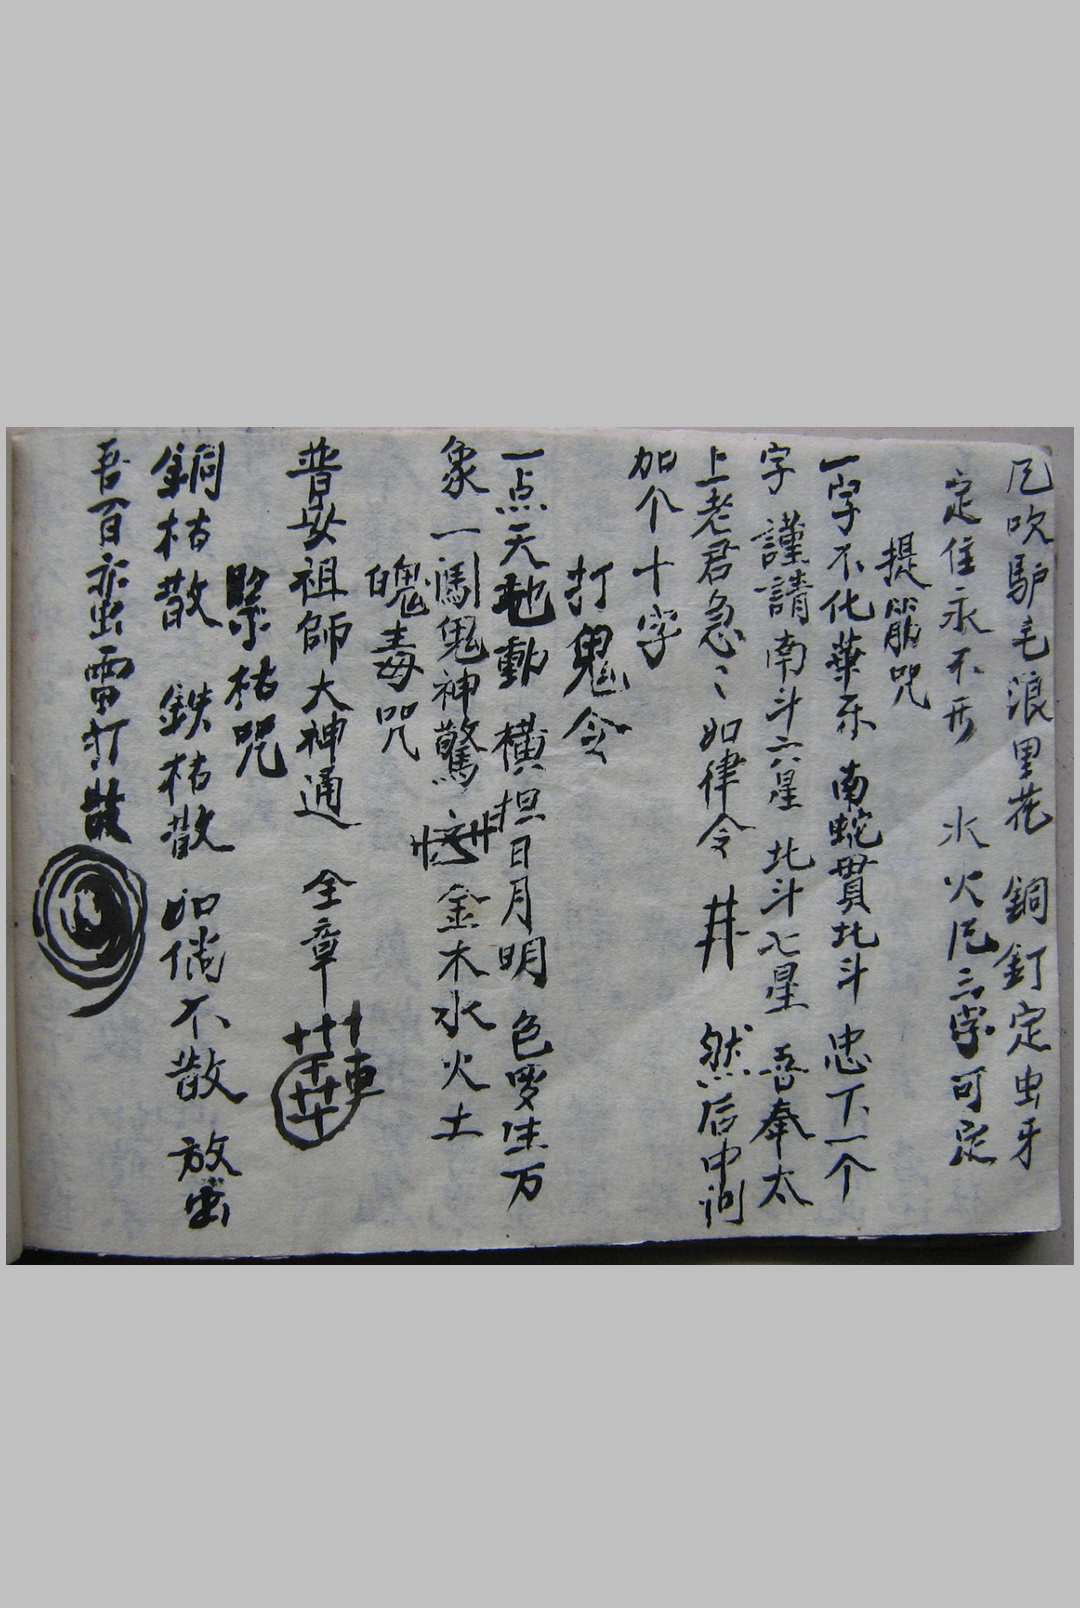 凡吹驴毛浪里花 銅釘定虫牙
定住永不形 水火凡三字可定
提筋咒
一字不化華 南蛇貫北斗 忠下一个
字 謹請南斗六星 北斗七星 吾奉太
上老君急〻如律令 井 然后中间
加个十字
打鬼令
一点天地動 橫担日月明 色罗生万
象 一闯鬼神驚 金木水火土
魄毒咒
普安祖師大神通 全章
緊枯咒
銅枯散 鉄枯散 如倘不散 放
吾百 雷打散